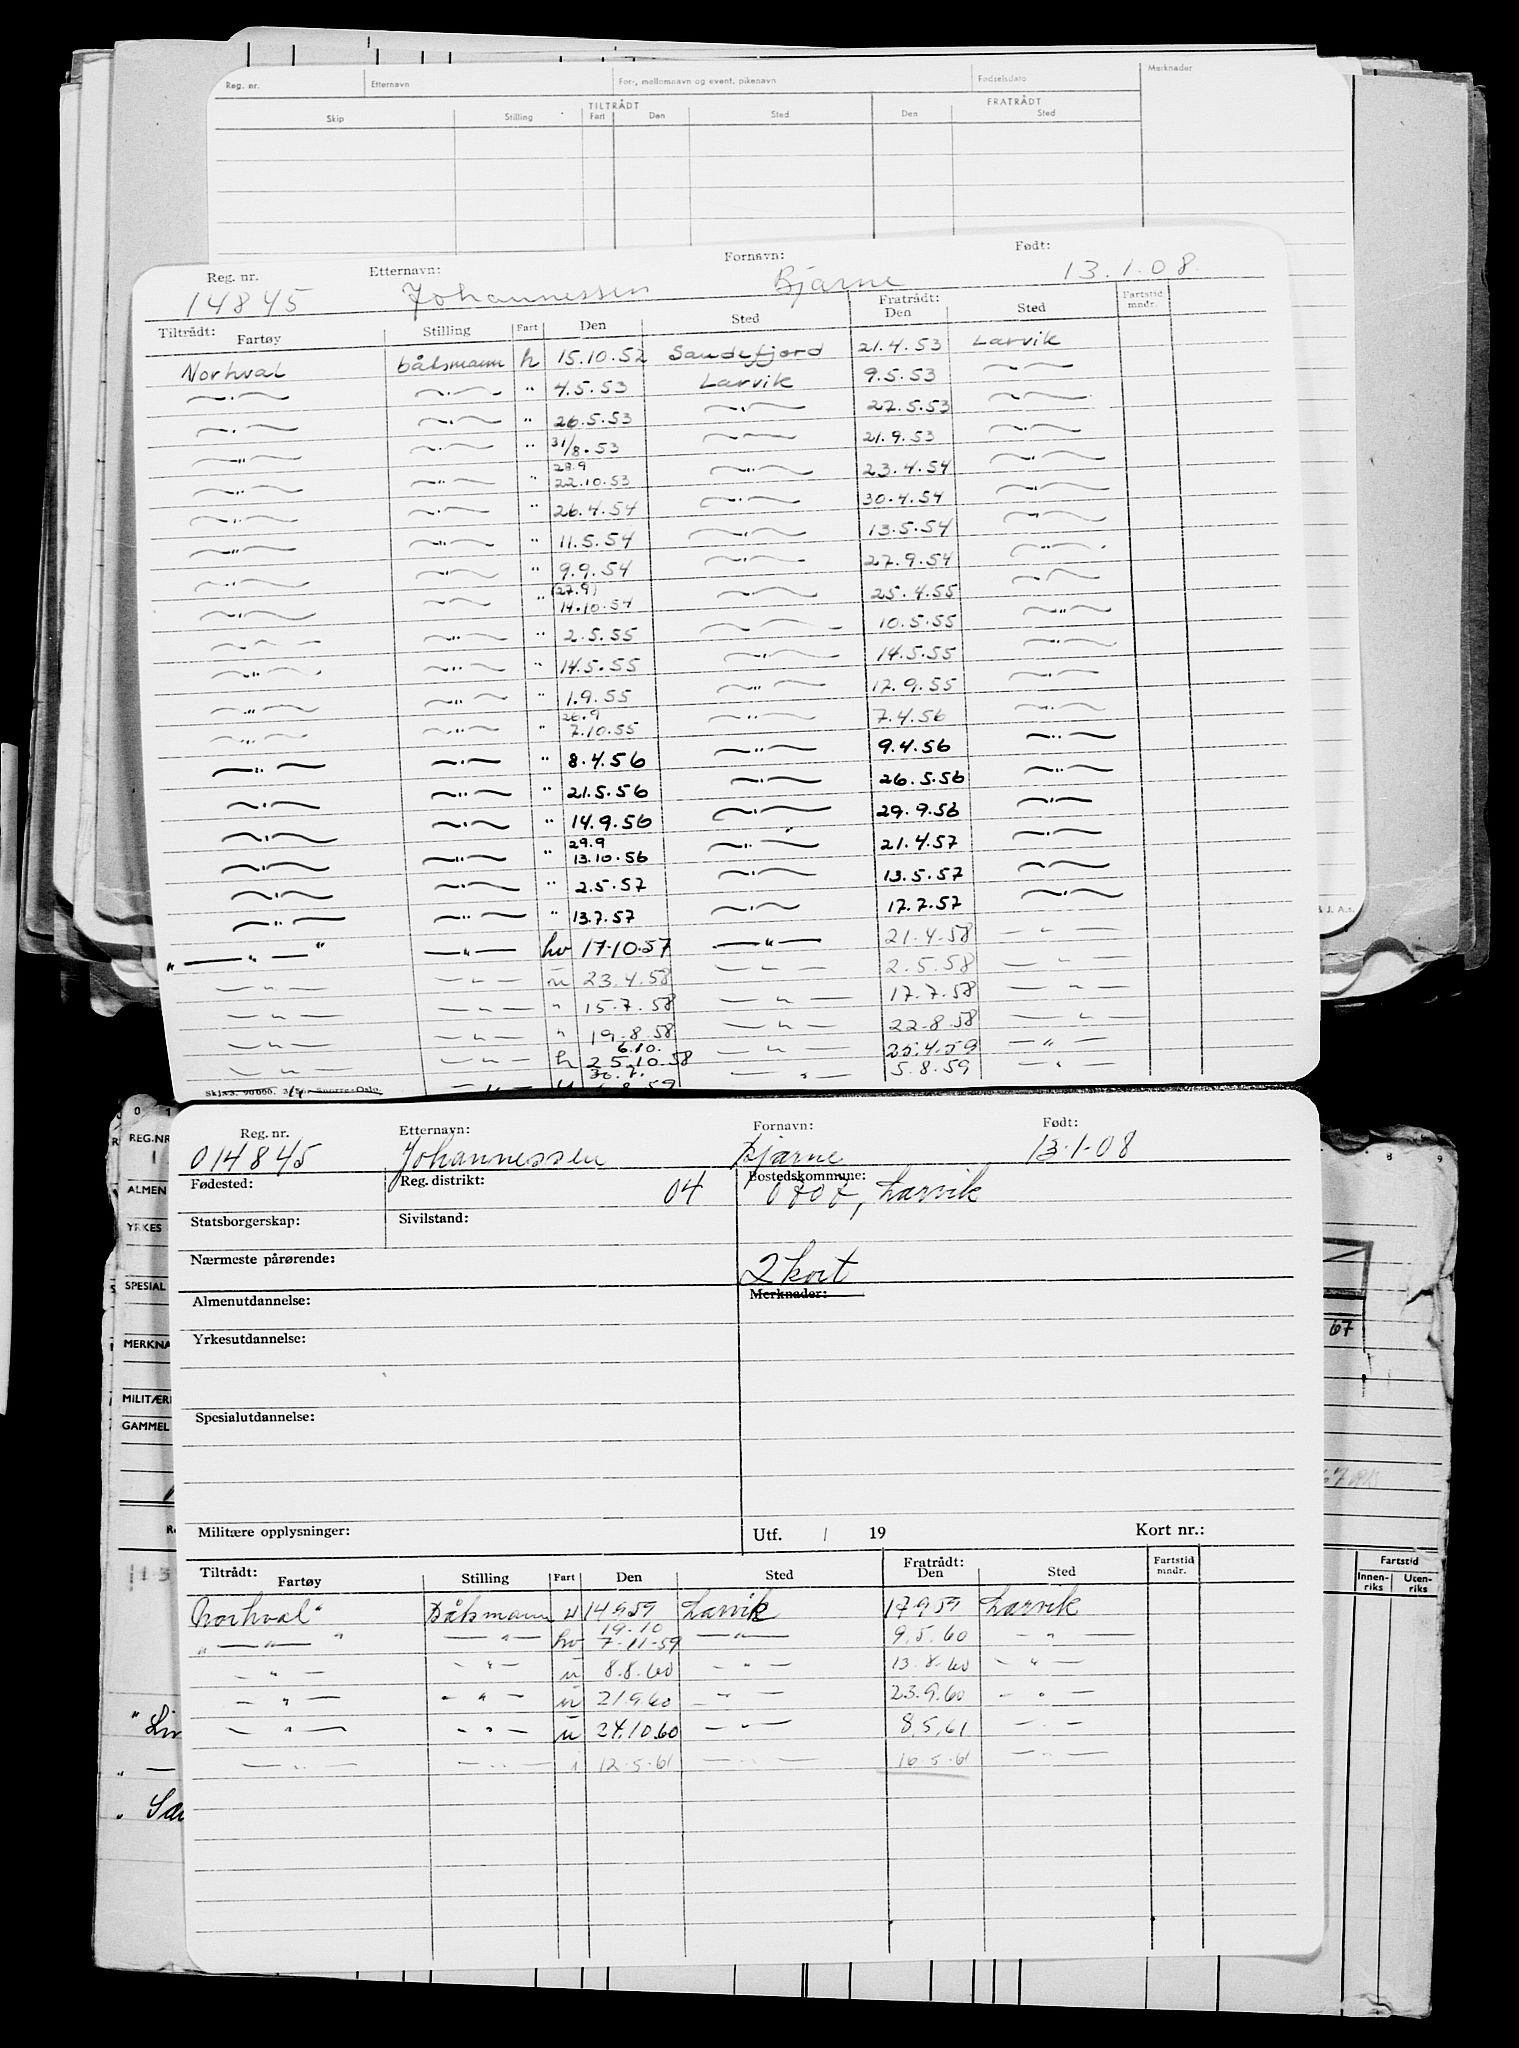 Reg. nr. Etternavn For-, mellomnavn og event. pikenavn Fødselsdato Merknader
TILTRÅDT FRATRÅDT
Skip Stilling Fart Den Sted Den Sted
Reg. nr. Etternavn: Fornavn: Født:
14845 Johannessen Bjarne 13.1.08.
Tiltrådt: Fratrådt:
Fartøy Stilling Fart Den Sted Den Sted Fartstid mndr.
Norhval båtsmann h 15.10.52 Sandefjord 21.4.53 Larvik
—〃— —〃— " 4.5.53 Larvik 9.5.53 —〃—
—〃— —〃— " 26.5.53 —〃— 27.5.53 —〃—
—〃— —〃— " 31/8.53 —〃— 21.9.53 —〃—
28.9
—〃— —〃— " 22.10.53 —〃— 23.4.54 —〃—
—〃— —〃— " 26.4.54 —〃— 30.4.54 —〃—
—〃— —〃— " 11.5.54 —〃— 13.5.54 —〃—
—〃— —〃— " 9.9.54 —〃— 27.9.54 —〃—
(27.9)
—〃— —〃— " 14.10.54 —〃— 25.4.55 —〃—
—〃— —〃— " 2.5.55 —〃— 10.5.55 —〃—
—〃— —〃— " 14.5.55 —〃— 14.5.55 —〃—
—〃— —〃— " 1.9.55 —〃— 17.9.55 —〃—
26.9
—〃— —〃— " 7.10.55 —〃— 7.4.56 —〃—
—〃— —〃— " 8.4.56 —〃— 9.4.56 —〃—
—〃— —〃— " 21.5.56 —〃— 26.5.56 —〃—
—〃— —〃— " 14.9.56 —〃— 29.9.56 —〃—
29.9
—〃— —〃— " 13.10.56 —〃— 21.4.57 —〃—
—〃— —〃— " 2.5.57 —〃— 13.5.57 —〃—
—〃— —〃— " 13.7.57 —〃— 17.7.57 —〃—
"—〃—" —〃— hv 17.10.57 —〃— 21.4.58 —〃—
—〃— —〃— u 23.4.58 —〃— 2.5.58 —〃—
—〃— —〃— " 15.7.58 —〃— 17.7.58 —〃—
—〃— —〃— " 19.8.58 —〃— 22.8.58 —〃—
6.10.
—〃— —〃— h 25.10.58 —〃— 25.4.59 —〃—
—〃— 8.59 —〃— 5.8.59 —〃—
& J. A.s.
Reg. nr. Etternavn: Fornavn: Født:
014845 Johannessen Bjarne 13.1.08
Fødested: Reg. distrikt: 04 Bostedskommune:
0707, Larvik
Statsborgerskap: Sivilstand:
Nærmeste pårørende:
2 kort
Almenutdannelse: Merknader:
Yrkesutdannelse:
Spesialutdannelse:
Militære opplysninger: Utf. / 19 Kort nr.:
Tiltrådt: Fratrådt:
Fartøy Stilling Fart Den Sted Den Sted Fartstid mndr.
Norhval" Båtsmann u 14959 Larvik 17959 Larvik
19.10
"—〃—" —〃— hv 7-11-59 —〃— 9.5.60 —〃—
—〃— —〃— u 8.8.60 —〃— 13.8.60 —〃—
—〃— —〃— u 21960 —〃— 23.9.60 —〃—
—〃— —〃— u 24.10.60 —〃— 8.5.61 —〃—
—〃— —〃— i 12.5.61 —〃— 16.5.61 —〃—
REG.NR
ALMEN
YRKES
SPESIAL
MERKNA
MILITÆR
GAMMEL
67
Fartstid
Innen-riks Uten-riks